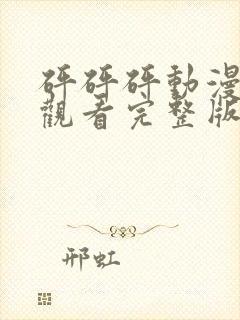 砰砰砰動漫
觀看完整版
邢虹